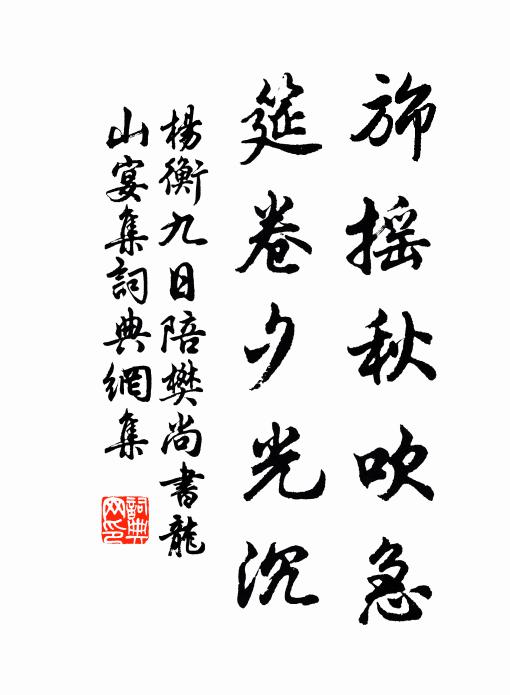 旆摇秋吹急
筵卷夕光沉
楊衡九日陪樊尚書龍
山宴集詞典網集
詞典
网印